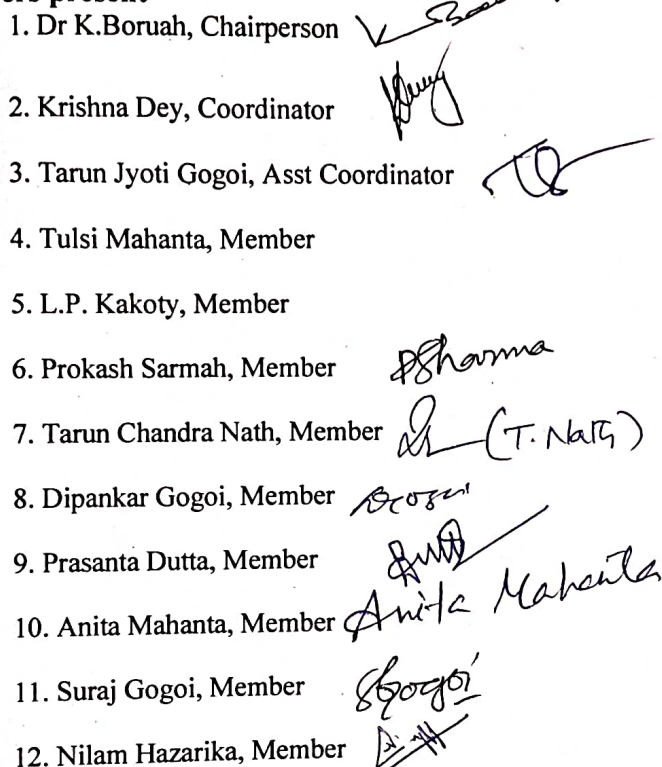 present
1. Dr K.Boruah, Chairperson
2. Krishna Dey, Coordinator
3. Tarun Jyoti Gogoi, Asst Coordinator
4. Tulsi Mahanta, Member
5. L.P. Kakoty, Member
6. Prokash Sarmah, Member PSharma
7. Tarun Chandra Nath, Member (T. Nath)
8. Dipankar Gogoi, Member DGogoi
9. Prasanta Dutta, Member
10. Anita Mahanta, Member Anita Mahanta
11. Suraj Gogoi, Member SGogoi
12. Nilam Hazarika, Member